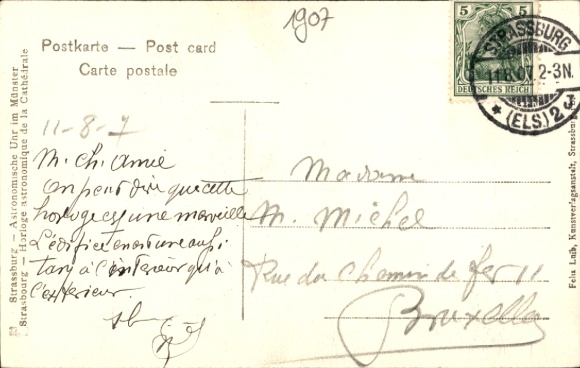 1907
Postkarte — Post card
Carte postale
5 5
DEUTSCHES REICH
STRASSBURG
11.8.07.2-3N.
* (ELS.) 2J
11-8-7
M. Ch. Amie
on peut dire que cette
horloge est une merveille
L'édifice en est une aussi
tant à l'intérieur qu'à
l'extérieur.
Madame
M. Michel
Rue du Chemin de fer 11
Bruxelles
Strassburg – Astronomische Uhr im Münster
Strasbourg – Horloge astronomique de la Cathédrale
Felix Luib, Kunstverlagsanstalt, Strassburg